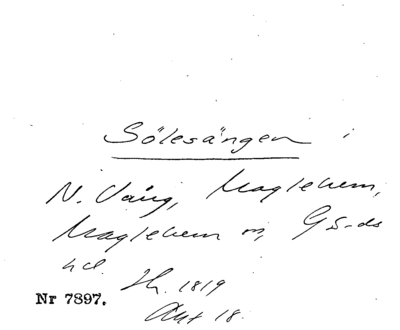 Sölesängen
N. Vång, Maglehem,
Maglehem sn, Gä-ds
hd. Sk. 1819
Akt 18.
Nr 7897.